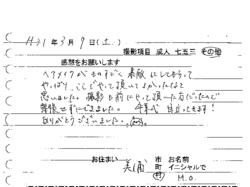 H31年3月9日(土)
撮影項目 成人 七五三 その他
感想をお願いします
ヘアメイクがものすごく素敵にしてもらって
やっぱりここでやって頂いてよかったなと
思いました。撮影も前にやって頂いた方だったので
緊張せずにできました。今年で自立ってます!
ありがとうございました。
お住まい 美浦 市 町 村
お名前 イニシャルで
M.O.